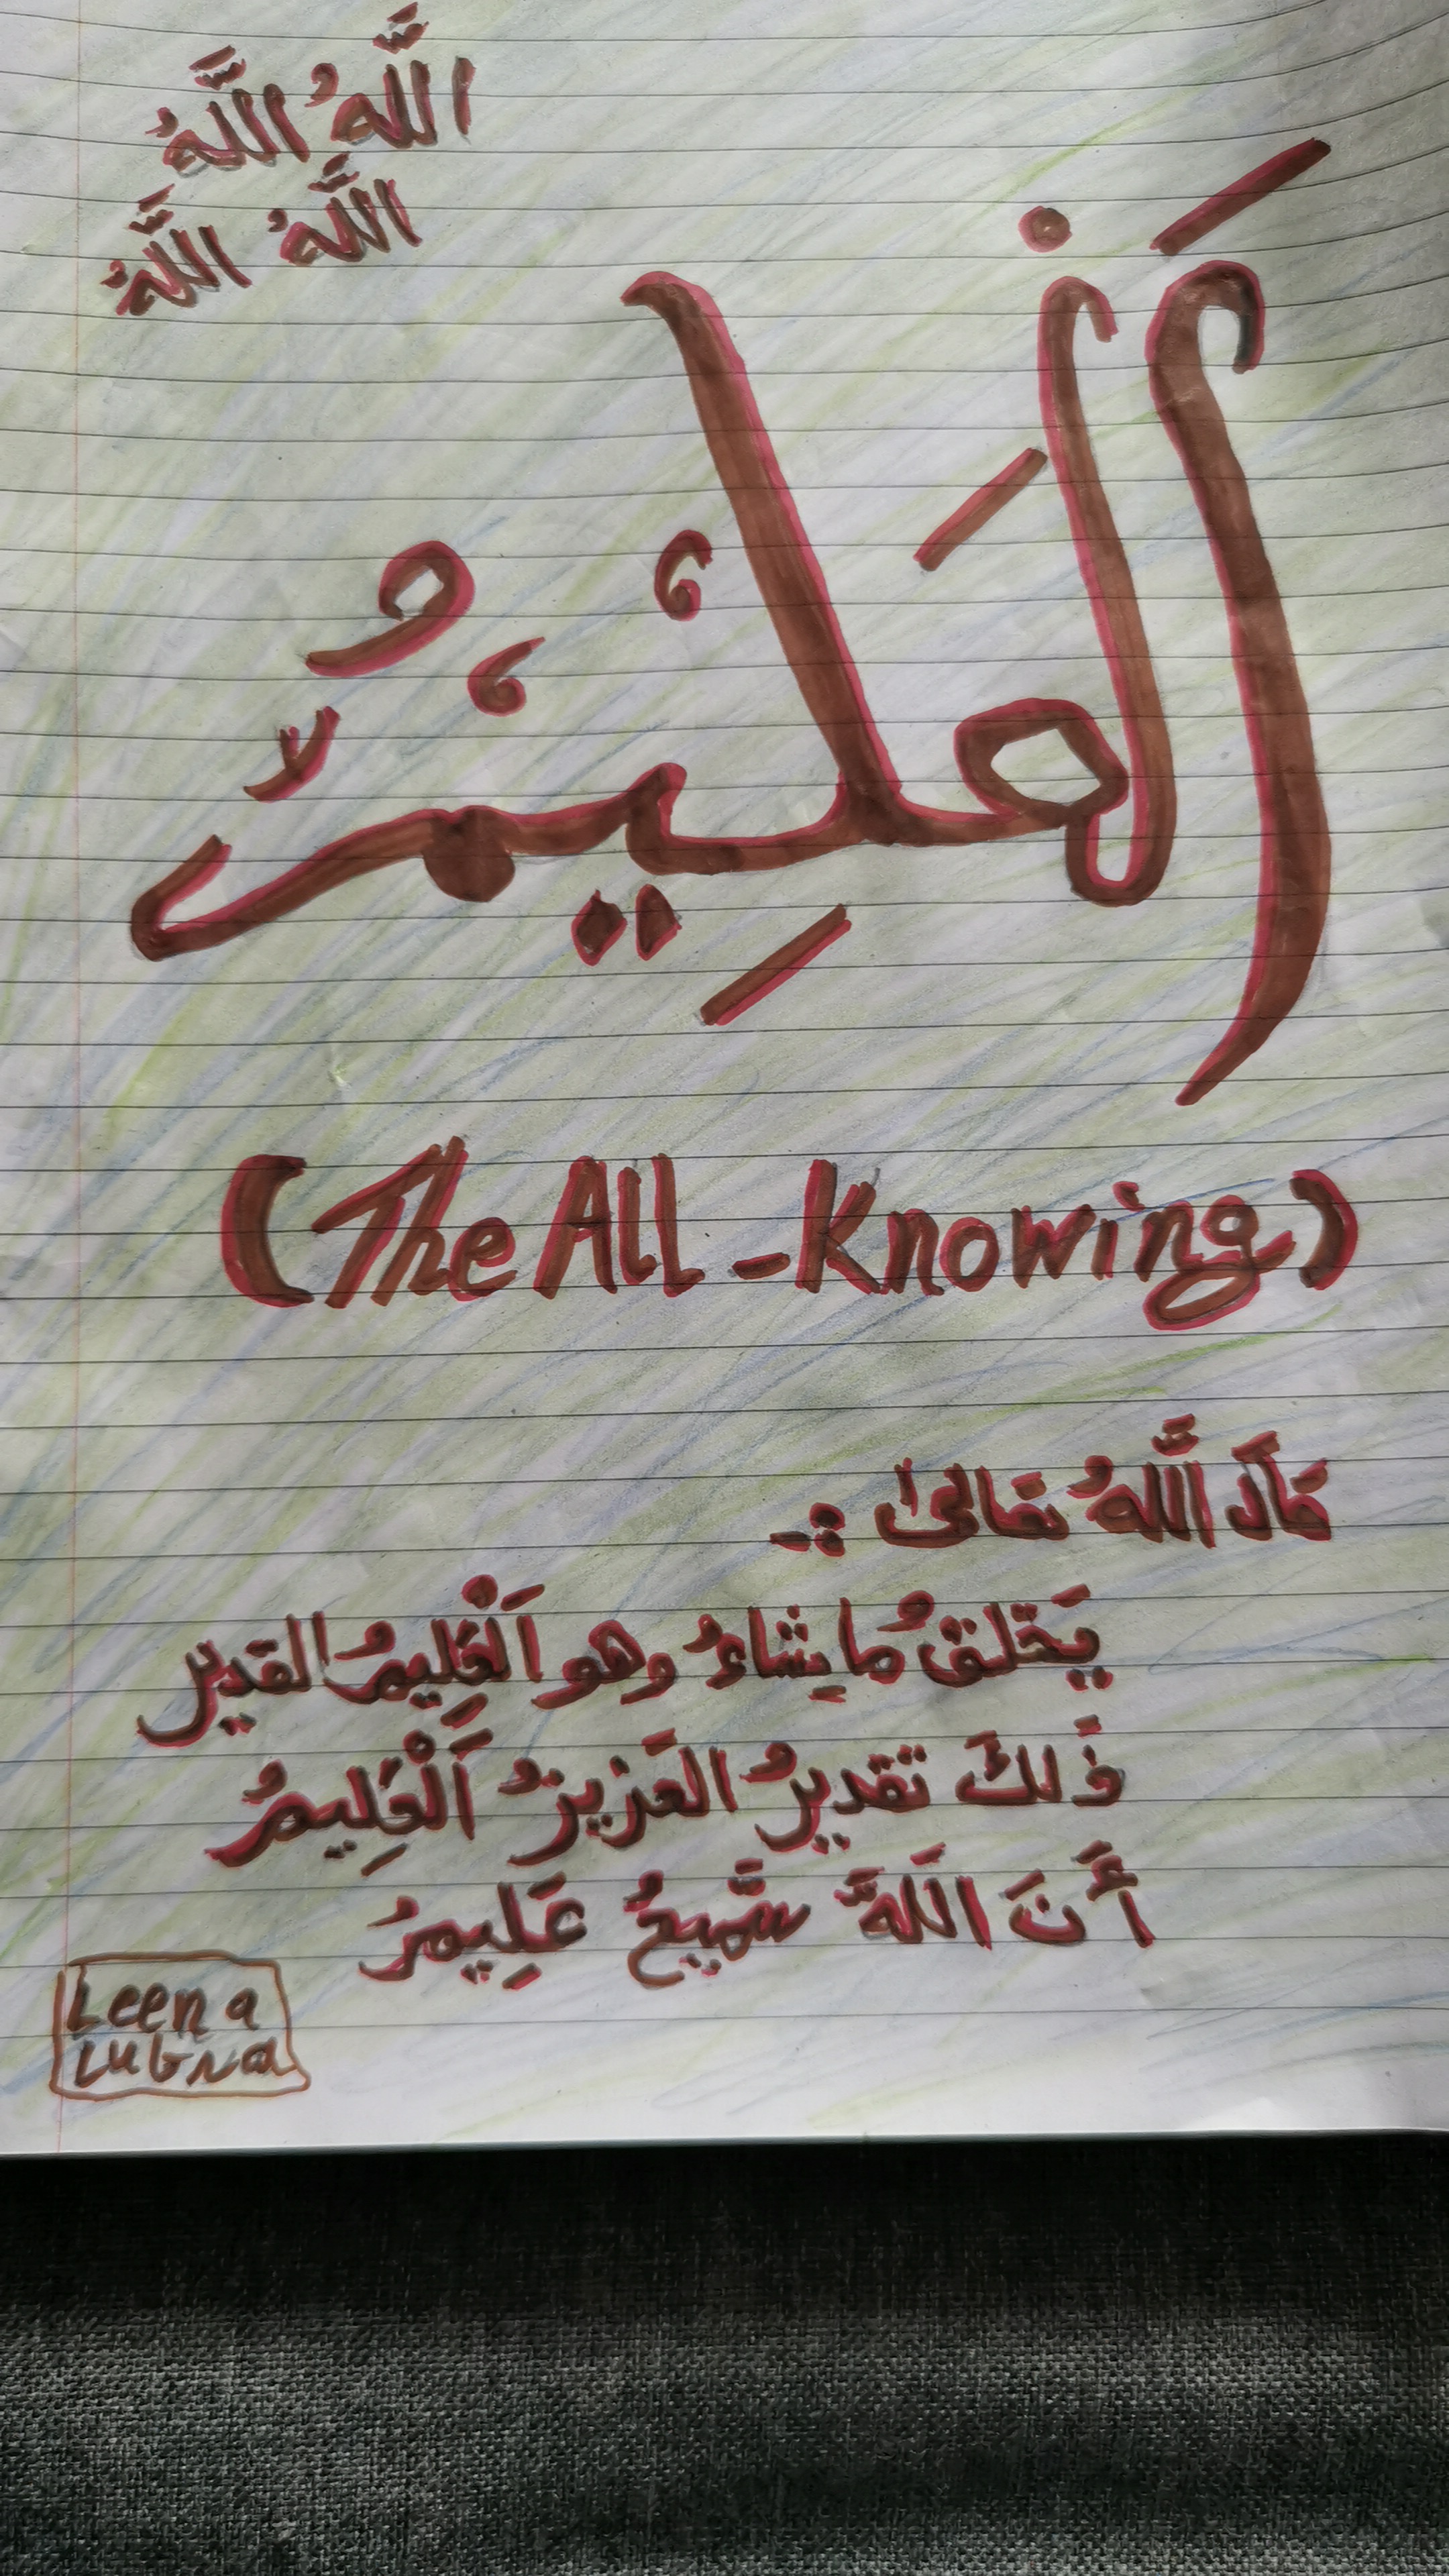 اللَّهُ اللَّهُ
اللَّهُ اللَّهُ
اَلْعَلِيمُ
(The All-Knowing)
قَالَ اللَّهُ تعالىٰ :-
يَخلقُ ما يشاءُ وهو اَلْعَلِيمُ القدير
ذَٰلكَ تقديرُ العَزيزُ اَلْعَلِيمُ
أَنَ اللَهَّ سَّميعُ عَلِيمُ
Leena
Lubna